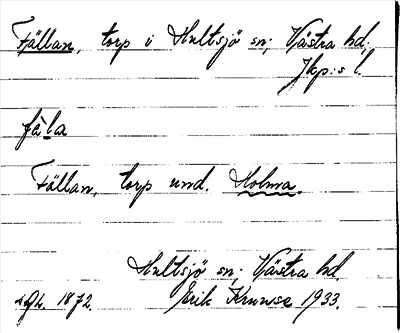 Fällan, torp i Hultsjö sn; Västra hd;
Jkp:s l.
fèla
Fällan, torp und. Holma.
Hultsjö sn; Västra hd.
1872. Erik Krumse 1933.